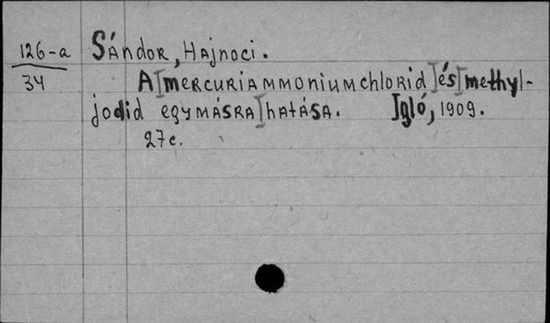 126-a
34
Sándor, Hajnoci.
A [mercuriammoniumchlorid] és [methyl-
jodid egymásra] hatása. Igló, 1909.
27e.